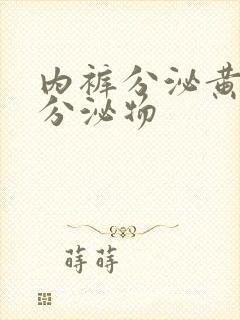 内裤分泌黄
分泌物
莳莳